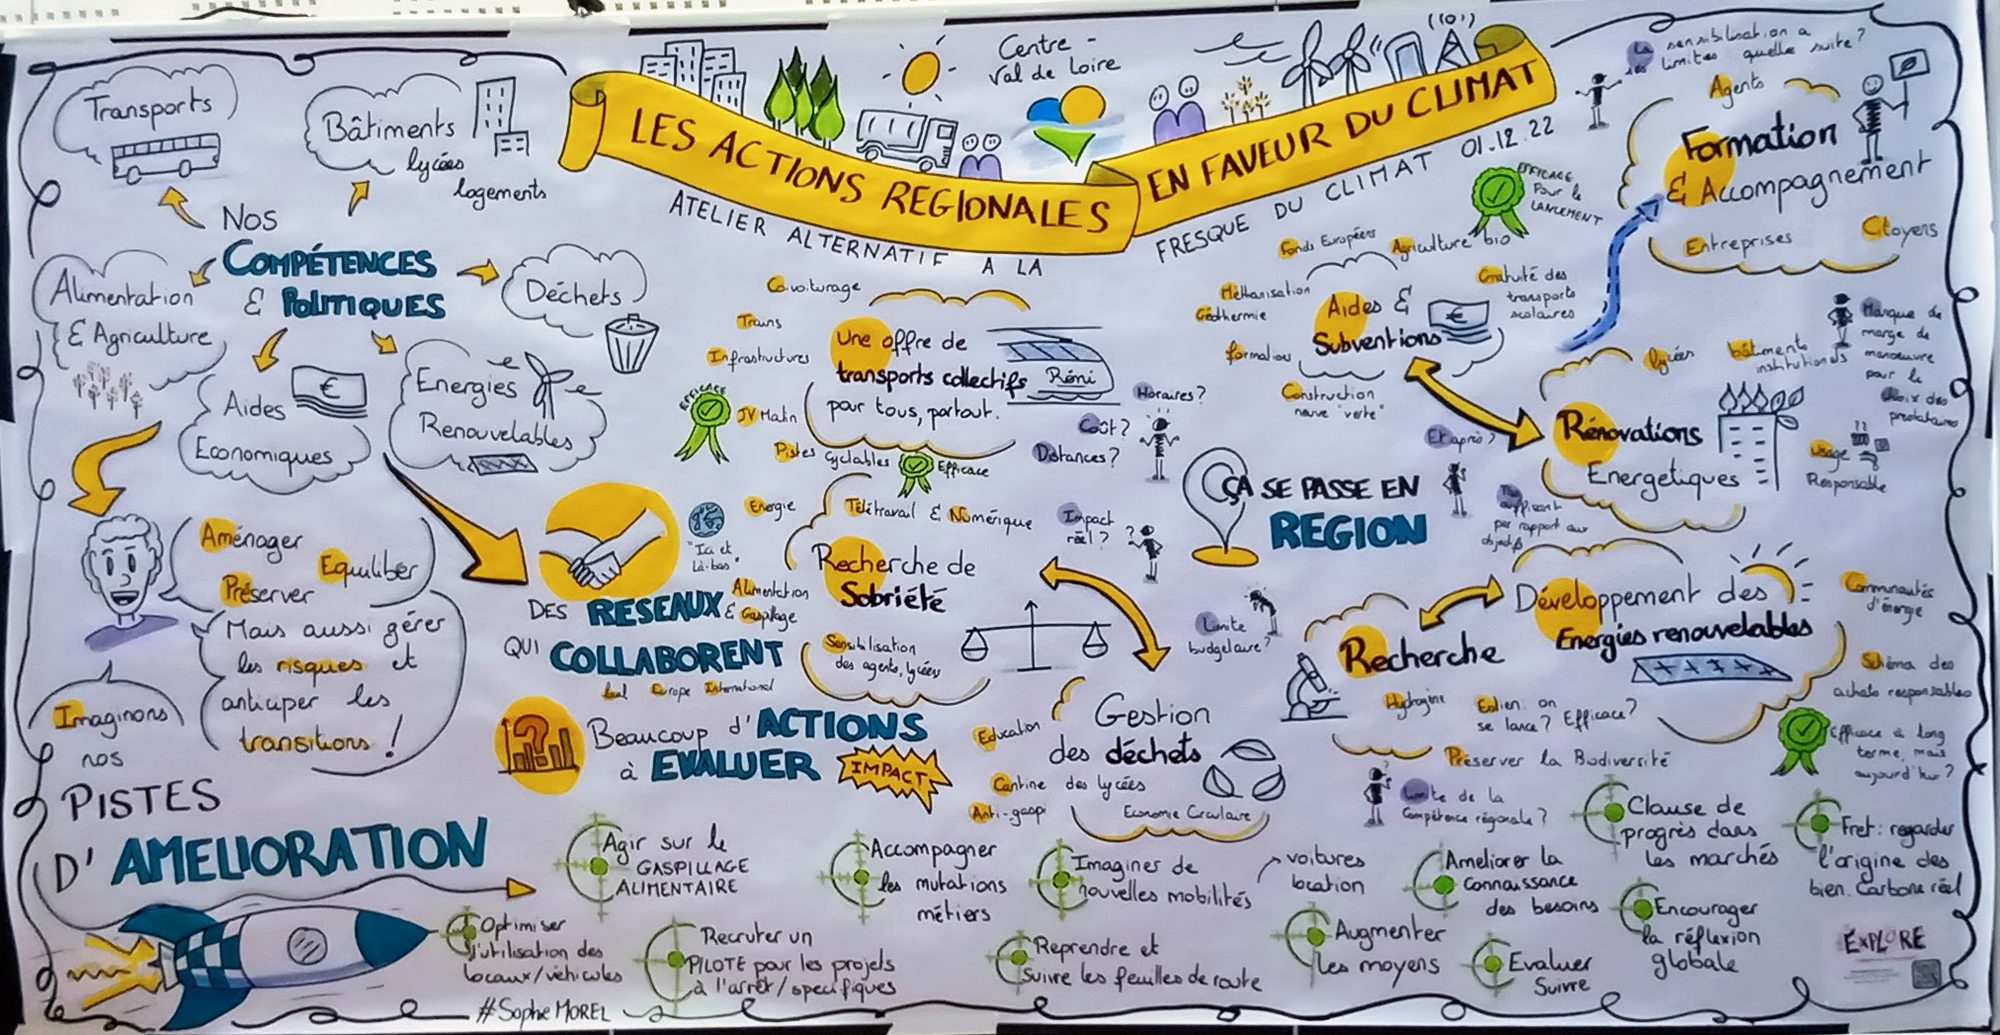 Centre -
Val de Loire
LES ACTIONS REGIONALES
EN FAVEUR DU CLIMAT
ATELIER ALTERNATIF A LA
FRESQUE DU CLIMAT 01.12.22
Transports
Bâtiments
lycées
logements
NOS
COMPÉTENCES
& POLITIQUES
Alimentation
& Agriculture
Déchets
Aides
Economiques
€
Energies
Renouvelables
Aménager
Equilibrer
Préserver
Mais aussi gérer
les risques et
anticiper les
transitions !
Imaginons
nos
PISTES
D'AMELIORATION
DES RESEAUX
QUI COLLABORENT
Local Europe International
Beaucoup d'ACTIONS
à EVALUER
IMPACT
?
Covoiturage
Trains
Infrastructures
EFFICACE
JV Malin
Pistes cyclables
Efficace
Une offre de
transports collectifs
pour tous, partout.
Rémi
Horaires?
Coût?
Distances?
Energie
"Ici et
Là-bas"
Alimentation
& Gaspillage
Télétravail & Numérique
Recherche de
Sobriété
Sensibilisation
des agents, lycées
Impact
réel?
Limite
budgétaire?
Gestion
des déchets
Education
Cantine des lycées
Anti-gaspi
Economie Circulaire
ÇA SE PASSE EN
REGION
Fonds Européens
Agriculture bio
Méthanisation
Géothermie
formations
Aides &
Subventions
€
Gratuité des
transports
scolaires
Construction
neuve "verte"
EFFICACE
Pour le
LANCEMENT
La sensibilisation a
ses limites quelle suite?
Agents
Formation
& Accompagnement
Entreprises
Citoyens
lycées
bâtiments
institutionnels
Manque de
marge de
manoeuvre
pour le
choix des
prestataires
Rénovations
Energetiques
Usage
Responsable
Et après?
par rapport aux
objectifs
Développement des
Energies renouvelables
Communautés
d'énergie
Schéma des
achats responsables
Recherche
Hydrogène
Eolien: on
se lance? Efficace?
Préserver la Biodiversité
Limite de la
Compétence régionale?
Efficace à long
terme, mais
aujourd'hui?
Agir sur le
GASPILLAGE
ALIMENTAIRE
Accompagner
les mutations
métiers
Imaginer de
nouvelles mobilités
voitures
location
Ameliorer la
connaissance
des besoins
Clause de
progrès dans
les marchés
Fret: regarder
l'origine des
bien. Carbone réel
Optimiser
l'utilisation des
locaux/véhicules
Recruter un
PILOTE pour les projets
à l'arrêt/spécifiques
Reprendre et
suivre les feuilles de route
Augmenter
les moyens
Evaluer
Suivre
Encourager
la réflexion
globale
#Sophie MOREL
EXPLORE